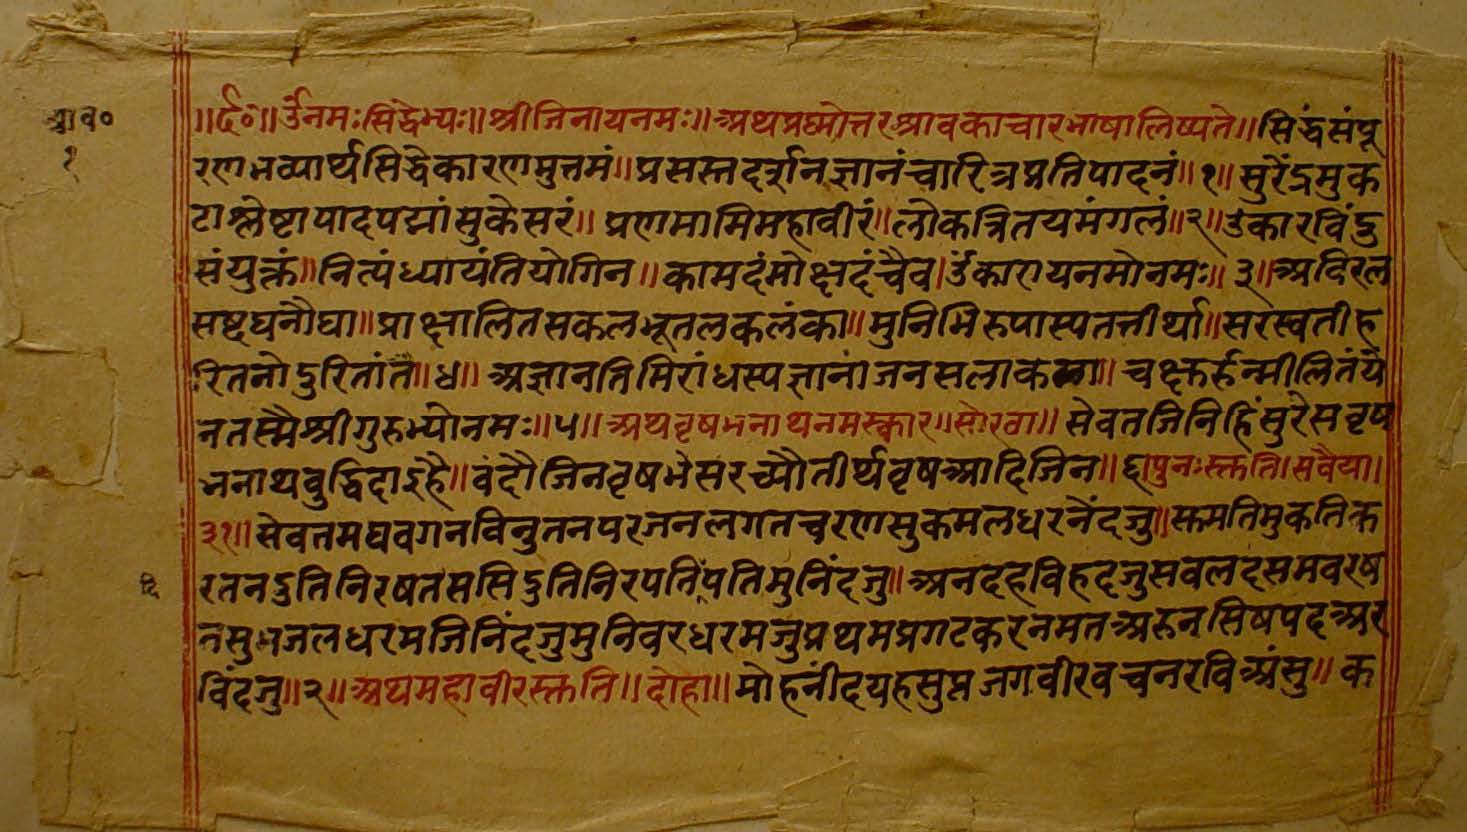 श्राव०
१
॥र्द०॥ उँनमःसिद्धेभ्यः॥श्रीजिनायनमः॥अथप्रष्मोत्तरश्रावकाचारभाषालिष्यते॥सिद्धंसंपू
रणभव्यार्थसिद्धेकारणमुत्तमं॥प्रसस्तदर्शनज्ञानंचारित्रप्रतिपादनं॥१॥सुरेंद्रमुक
टाश्लेष्टापादपद्मांसुकेसरं॥प्रणमामिमहावीरं॥लोकत्रितयमंगलं॥२॥उंकारविंदु
संयुक्तं॥नित्यंध्यायंतियोगिन॥कामदंमोक्षदंचैव।उँकारायनमोनमः॥३॥अविरल
सष्टघनौघा॥प्राक्षालितसकलभूतलकलंका॥मुनिभिरुपास्पतत्तीर्था॥सरस्वतीह
रितनोदुरितांतं॥४॥अज्ञानतिमिरांधस्पज्ञानांजनसलाकया॥चक्षुर्रुन्मीलितंये
नतस्मैश्रीगुरुभ्योनमः॥५॥अथवृषभनाथनमस्कार॥सोरठा॥सेवतजिनिहिंसुरेसवृष
भनाथवुद्धिदाइहै॥वंदौजिनवृषभेसरच्यौतीर्थवृषआदिजिन॥६॥पुनःस्तुति॥सवैया।
३१॥सेवतमघवगनविनुतनपरजनलगतचरणसुकमलधरनैंदजु॥स्तमतिमुकतिक
रतनदुतिनिरषतससिदुतिनिरपतिपतिमुनिंदजु॥अनदहविहदजुसवलदसमवरष
तसुभजलधरमजिनिंदजुमुनिवरधरमजुप्रथमप्रगटकरनमतअरुनसिषपदअर
विंदजु॥२॥अथमहावीरस्तुति॥दोहा॥मोहनींदयहसुप्तजगवीरवचनरविअंसु॥क